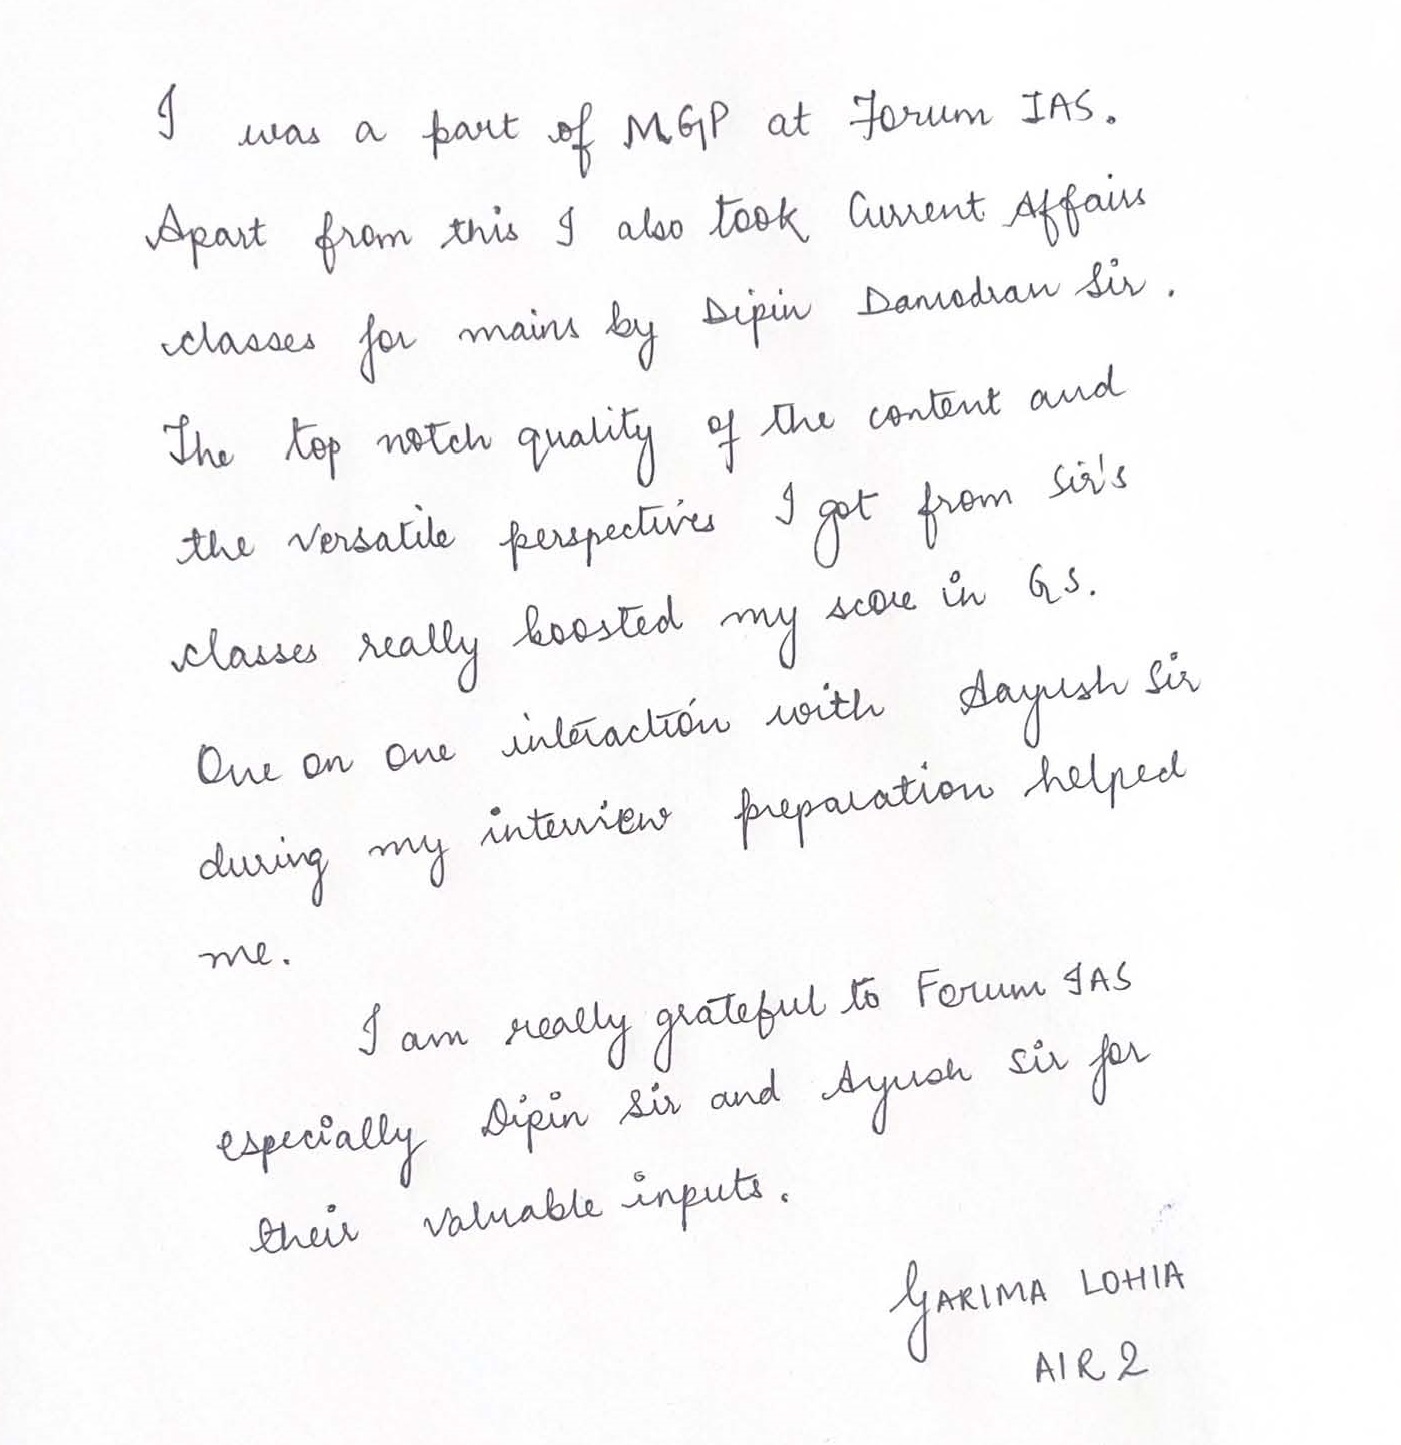 I was a part of MGP at Forum IAS.
Apart from this I also took Current Affairs
classes for mains by Dipin Damodran Sir.
The top notch quality of the content and
the versatile perspectives I got from Sir's
classes really boosted my score in GS.
One on one interaction with Aayush Sir
during my interview preparation helped
me.
I am really grateful to Forum IAS
especially Dipin Sir and Ayush Sir for
their valuable inputs.
GARIMA LOHIA
AIR 2